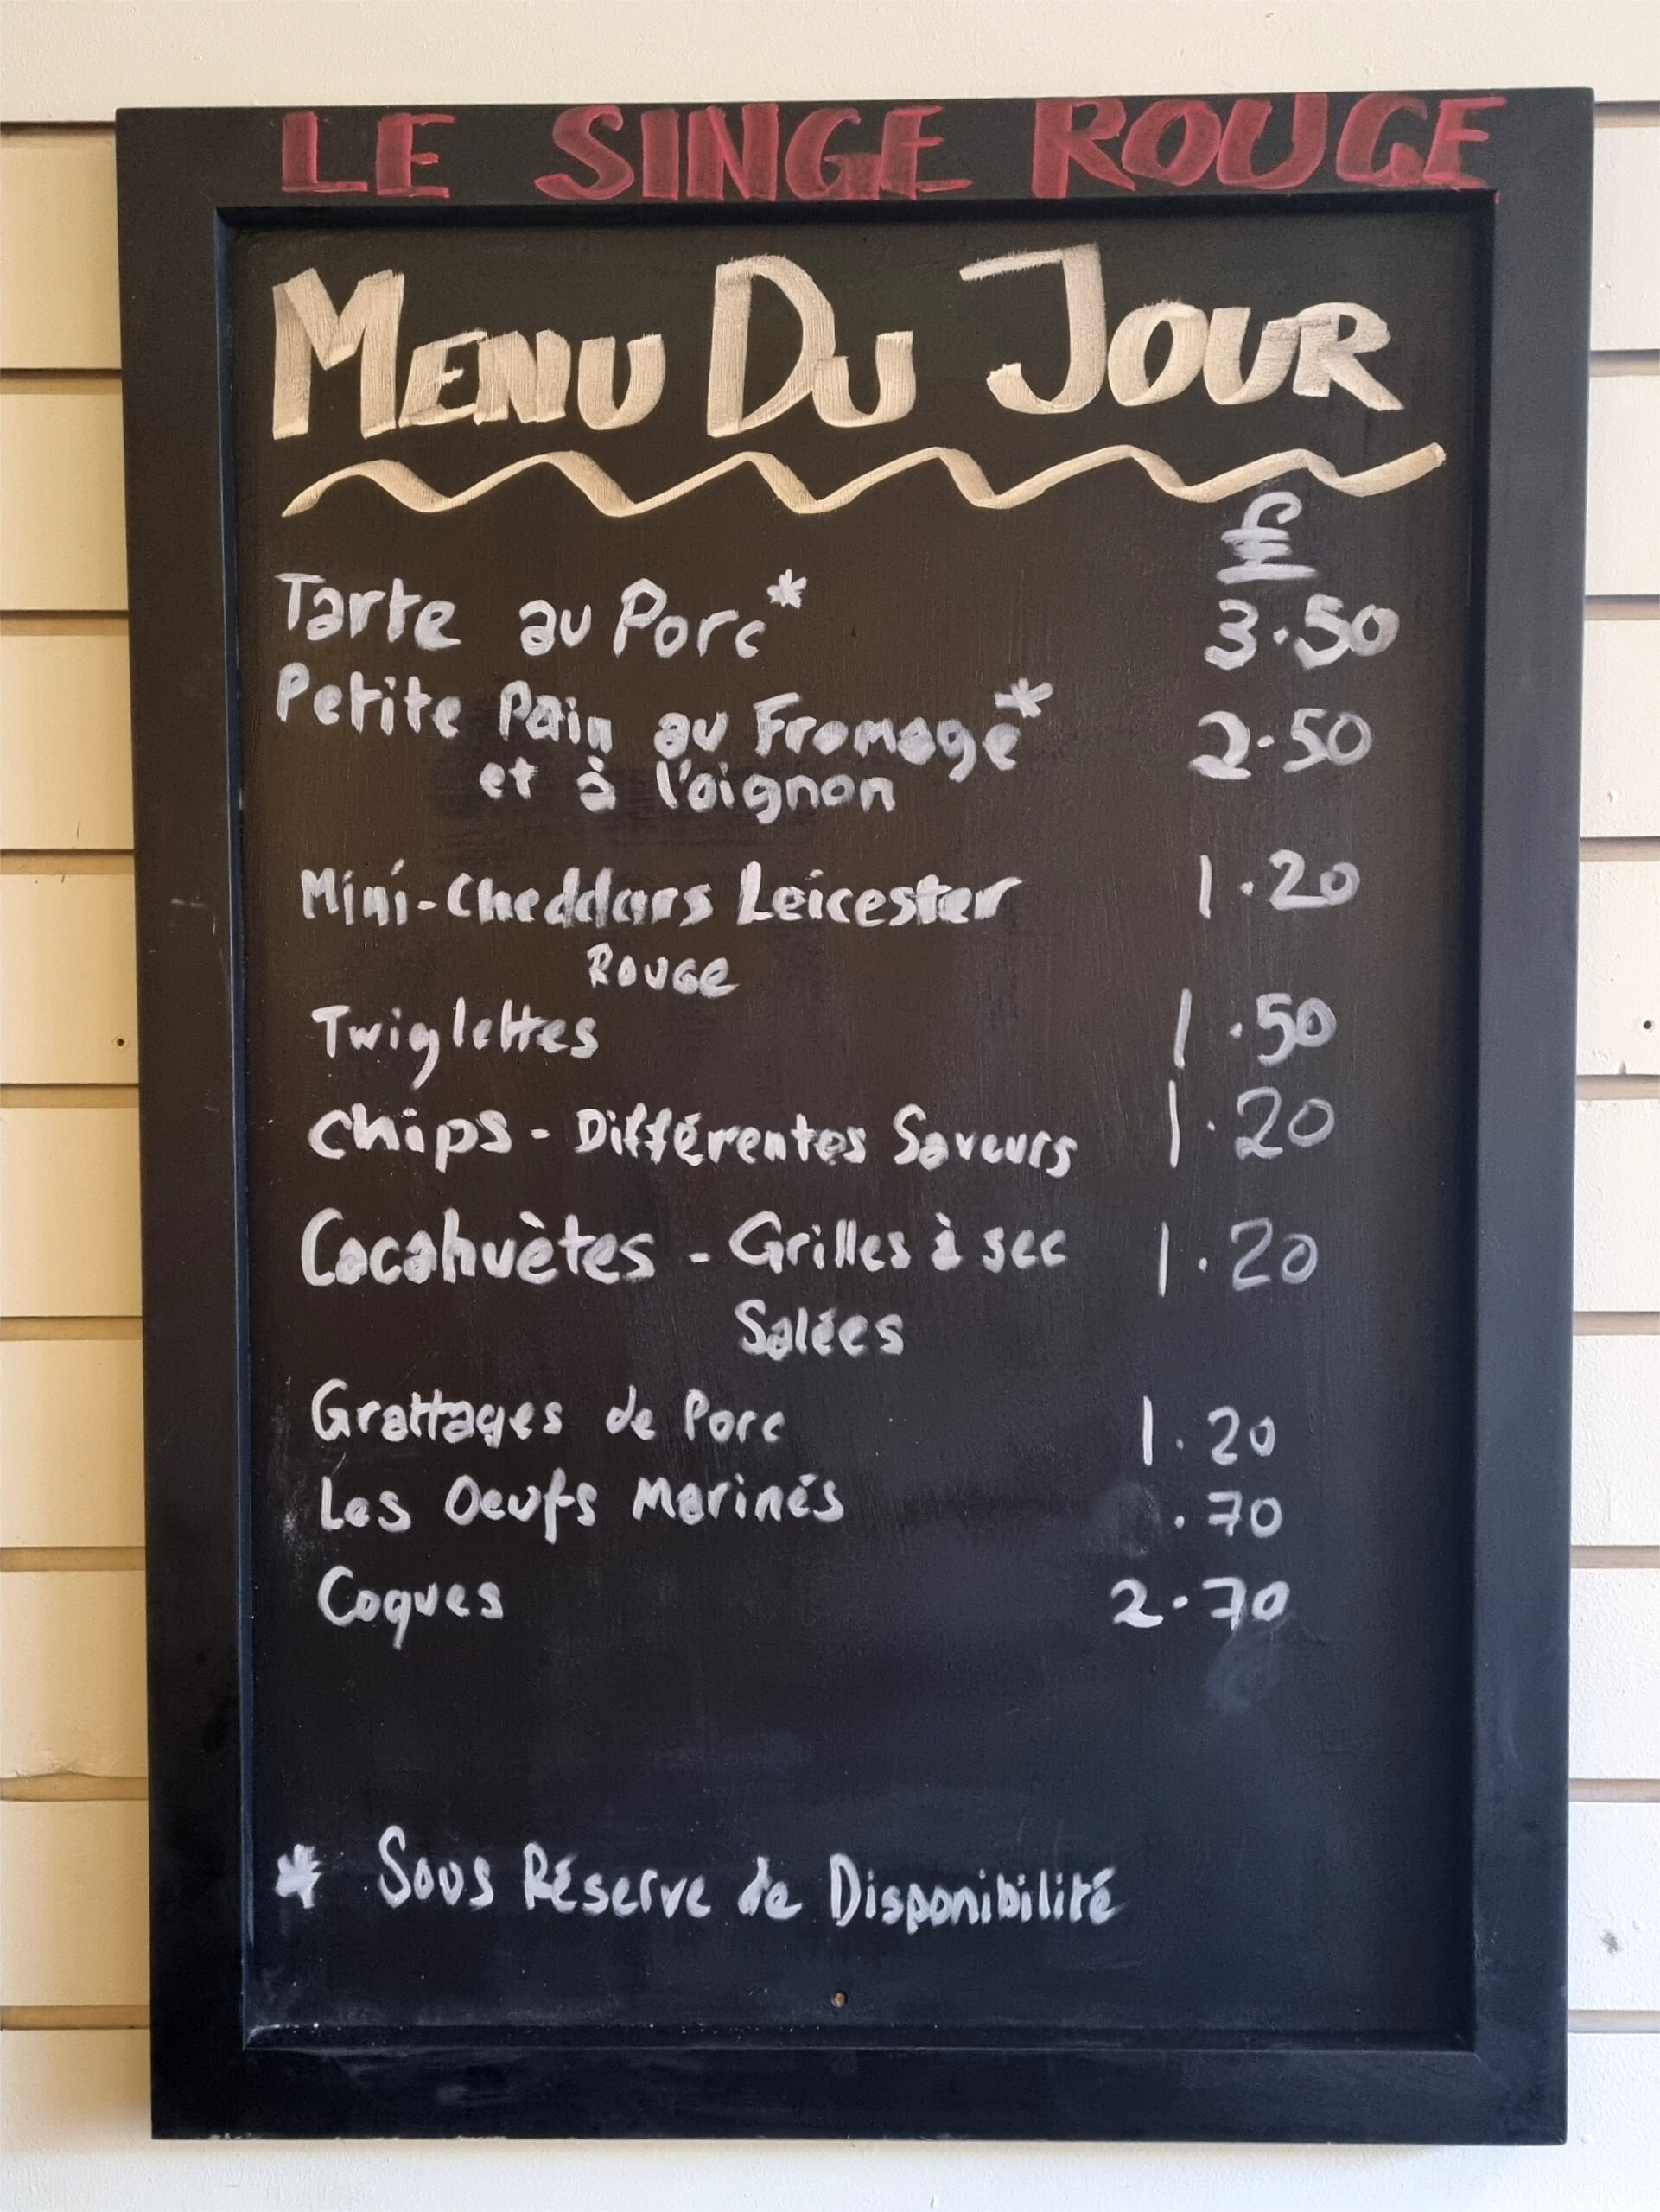 LE SINGE ROUGE
MENU DU JOUR
£
Tarte au Porc* 3.50
Petite Pain au Fromage* 2.50
et à l'oignon
Mini-Cheddars Leicester 1.20
ROUGE
Twiglettes 1.50
Chips - Différentes Saveurs 1.20
Cacahuètes - Grilles à sec 1.20
Salées
Grattages de Porc 1.20
Les Oeufs Marinés .70
Coques 2.70
* Sous Réserve de Disponibilité